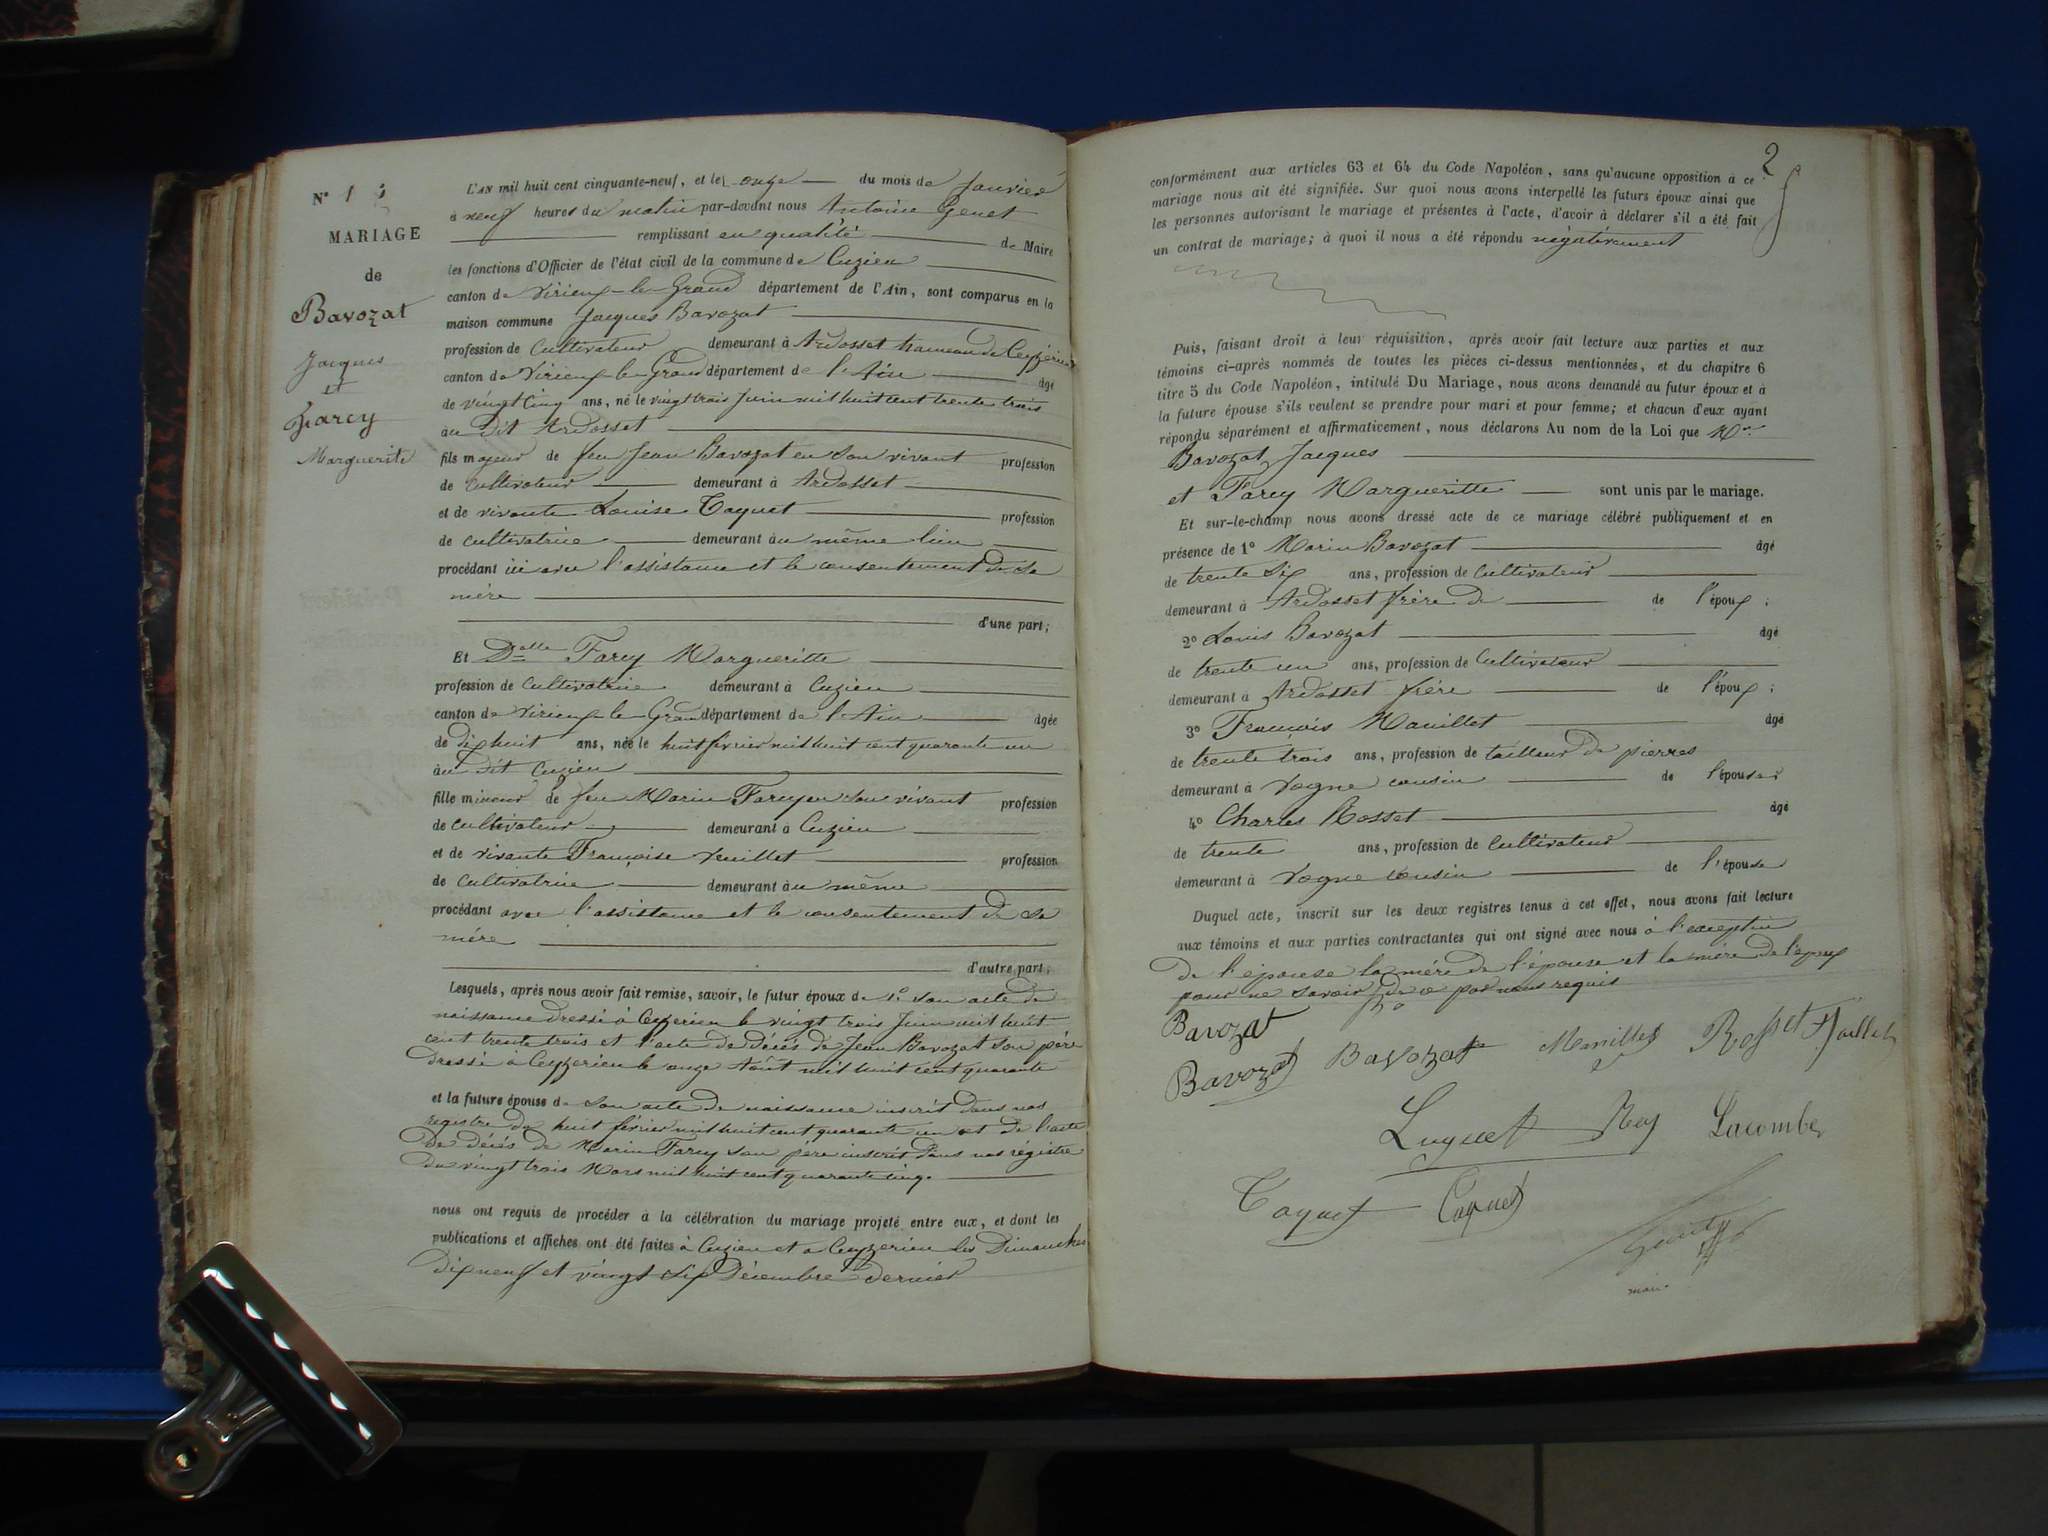 N° 1
MARIAGE
de
Bavozat
Jacques
et
Farcy
Marguerite
L'AN mil huit cent cinquante-neuf, et le onze du mois de Janvier
à neuf heures du matin par-devant nous Antoine Genet
remplissant en qualité de Maire
les fonctions d'Officier de l'état civil de la commune de Cuzieu
canton de Virieu-le-Grand département de l'Ain, sont comparus en la
maison commune Jacques Bavozat
profession de Cultivateur demeurant à Ardosset hameau de Ceyzérieu
canton de Virieu-le-Grand département de l'Ain âgé
de vingt cinq ans, né le vingt trois Juin mil huit cent trente trois
au dit Ardosset
fils majeur de feu Jean Bavozat en son vivant profession
de cultivateur demeurant à Ardosset
et de vivante Louise Taquet profession
de cultivatrice demeurant au même lieu
procédant ici avec l'assistance et le consentement de sa
mère
d'une part;
Et Delle Farcy Margueritte
profession de Cultivatrice demeurant à Cuzieu
canton de Virieu-le-Grand département de l'Ain âgée
de dix huit ans, née le huit février mil huit cent quarante un
au dit Cuzieu
fille mineur de feu Marin Farcy en son vivant profession
de cultivateur demeurant à Cuzieu
et de vivante Françoise Veuillet profession
de cultivatrice demeurant au même
procédant avec l'assistance et le consentement de sa
mére
d'autre part;
Lesquels, après nous avoir fait remise, savoir, le futur époux de 1° son acte de
naissance dressé à Ceyzerieu le vingt trois Juin mil huit
cent trente trois et l'acte de décés de Jean Bavozat son père
dressé à Ceyzerieu le onze Août mil huit cent quarante
et la future épouse de son acte de naissance inscrit dans nos
registre du huit février mil huit cent quarante un et de l'acte
de décés de Marin Farcy son père inscrit dans nos régistre
du vingt trois Mars mil huit cent quarante cinq.
nous ont requis de procéder à la célébration du mariage projeté entre eux, et dont les
publications et affiches ont été faites à Cuzieu et a Ceyzerieu les Dimanches
dix neuf et vingt six Décembre dernier
2
conformément aux articles 63 et 64 du Code Napoléon, sans qu'aucune opposition à ce
mariage nous ait été signifiée. Sur quoi nous avons interpellé les futurs époux ainsi que
les personnes autorisant le mariage et présentes à l'acte, d'avoir à déclarer s'il a été fait
un contrat de mariage; à quoi il nous a été répondu négativement
Puis, faisant droit à leur réquisition, après avoir fait lecture aux parties et aux
témoins ci-après nommés de toutes les pièces ci-dessus mentionnées, et du chapitre 6
titre 5 du Code Napoléon, intitulé Du Mariage, nous avons demandé au futur époux et à
la future épouse s'ils veulent se prendre pour mari et pour femme; et chacun d'eux ayant
répondu séparément et affirmativement, nous déclarons Au nom de la Loi que Mr
Bavozat Jacques
et Farcy Margueritte sont unis par le mariage.
Et sur-le-champ nous avons dressé acte de ce mariage célébré publiquement et en
présence de 1° Marin Bavozat âgé
de trente six ans, profession de Cultivateur
demeurant à Ardosset frère de de l'époux;
2° Louis Bavozat âgé
de trente un ans, profession de Cultivateur
demeurant à Ardosset frère de l'époux;
3° François Manillet âgé
de trente trois ans, profession de tailleur de pierres
demeurant à Vogne cousin de l'épouse
4° Charles Rosset âgé
de trente ans, profession de Cultivateur
demeurant à Vogne cousin de l'épouse
Duquel acte, inscrit sur les deux registres tenus à cet effet, nous avons fait lecture
aux témoins et aux parties contractantes qui ont signé avec nous à l'exeption
de l'épouse la mére de l'épouse et la mére de l'époux
pour ne savoir de ce par nous requis
Bavozat
Bavozat Bavozat Manillet Rosset Jaillet
Luquet Rey Lacombe
Taquet Coquet
maire